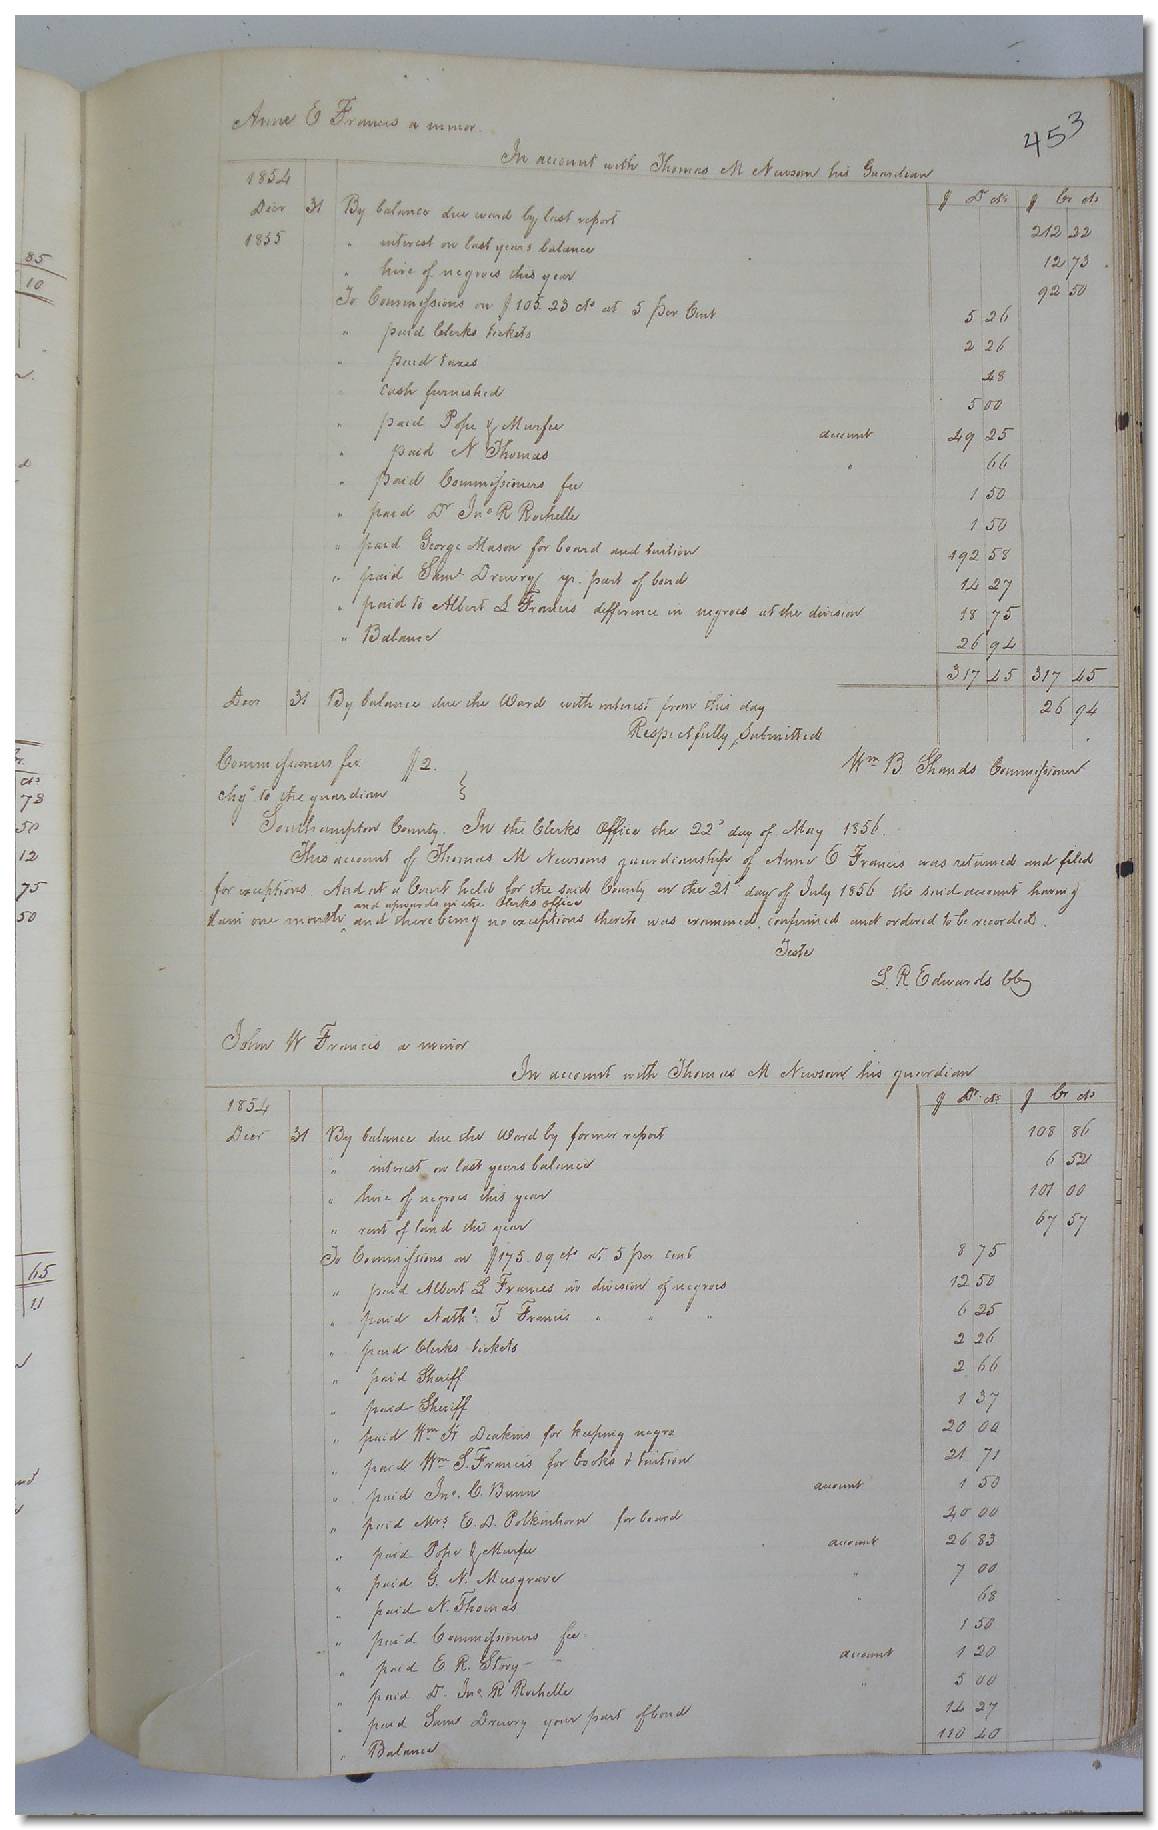 453
Anne E Francis a minor.
In account with Thomas M Newsom his Guardian
1854 $ Dr cts $ Cr cts
Decr 31 By balance due ward by last report 212 22
1855 " interest on last years balance 12 73
" hire of negroes this year 92 50
To Commissions on $105.23 cts at 5 per Cent 5 26
" paid Clerks tickets 2 26
" paid taxes 48
" cash furnished 5 00
" paid Pope & Murfee account 49 25
" paid N Thomas " 66
" paid Commissioners fee 1 50
" paid Dr Jno R Rochelle 1 50
" paid George Mason for board and tuition 192 58
" paid Saml Drewry yr. part of bond 14 27
" paid to Albert L Francis difference in negroes at the division 18 75
" Balance 26 94
317 45 317 45
Decr 31 By balance due the Ward with interest from this day 26 94
Respectfully Submitted
Commissioners fee $2. Wm B Shands Commissioner
chgd to the guardian
Southampton County. In the Clerks Office the 22d day of May 1856.
This account of Thomas M Newsoms guardianship of Anne E Francis was returned and filed
for exceptions And at a Court held for the said County on the 21st day of July 1856 the said account having
lain one month and upwards in the Clerks office and there being no exceptions thereto was examined, confirmed and ordered to be recorded.
Teste
L. R. Edwards CC
John W Francis a minor
In account with Thomas M Newsom his guardian
1854 $ Dr. cts $ Cr cts
Decr 31 By balance due the Ward by former report 108 86
" interest on last years balance 6 52
" hire of negroes this year 101 00
" rent of land this year 67 57
To Commissions on $175.09 cts at 5 per cent 8 75
" paid Albert L Francis in division of negroes 12 50
" paid Nathl. T Francis " " " 6 25
" paid Clerks tickets 2 26
" paid Sheriff 2 66
" paid Sheriff 1 37
" paid Wm H Deakins for keeping negro 20 00
" paid Wm S. Francis for books & tuition 21 71
" paid Jno. C. Bunn account 1 50
" paid Mrs E. D. Polkinhorn for board 40 00
" paid Pope & Murfee account 26 83
" paid G. N. Musgrave " 7 00
" paid N. Thomas " 68
" paid Commissioners fee. 1 50
" paid E R. Story account 1 20
" paid Dr. Jno. R Rochelle " 5 00
" paid Saml Drewry your part of bond 14 27
" Balance 110 40
85
10
Cr.
cts
73
50
12
75
50
65
11